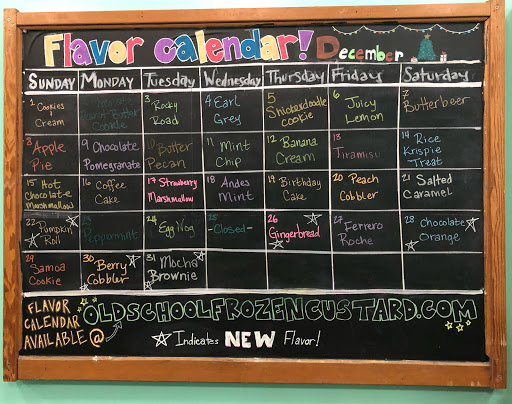 Flavor calendar! December
SUNDAY MONDAY Tuesday Wednesday Thursday Friday Saturday
1 Cookies + Cream
2 Peanut Butter Cookie
3 Rocky Road
4 Earl Grey
5 Snickerdoodle cookie
6 Juicy Lemon
7 Butterbeer
8 Apple Pie
9 Chocolate Pomegranate
10 Butter Pecan
11 Mint Chip
12 Banana Cream
13 Tiramisu
14 Rice Krispie Treat
15 Hot Chocolate Marshmallow
16 Coffee Cake
17 Strawberry Marshmallow
18 Andes Mint
19 Birthday Cake
20 Peach Cobbler
21 Salted Caramel
22 Pumpkin Roll
23 Peppermint
24 Egg Nog
25 -Closed-
26 Gingerbread
27 Ferrero Roche
28 Chocolate Orange
29 Samoa Cookie
30 Berry Cobbler
31 Mocha Brownie
FLAVOR CALENDAR AVAILABLE @
OLDSCHOOLFROZENCUSTARD.COM
Indicates NEW Flavor!